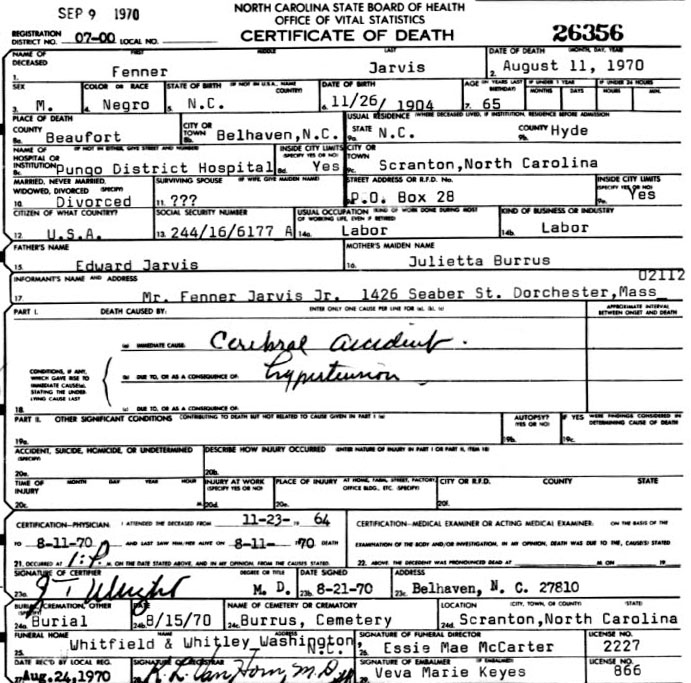 SEP 9 1970
NORTH CAROLINA STATE BOARD OF HEALTH
OFFICE OF VITAL STATISTICS
CERTIFICATE OF DEATH
26356
REGISTRATION DISTRICT NO. 07-00 LOCAL NO.
NAME OF DECEASED FIRST MIDDLE LAST DATE OF DEATH (MONTH, DAY, YEAR)
1. Fenner Jarvis 2. August 11, 1970
SEX COLOR OR RACE STATE OF BIRTH (IF NOT IN U.S.A., NAME COUNTRY) DATE OF BIRTH AGE (IN YEARS LAST BIRTHDAY) IF UNDER 1 YEAR IF UNDER 24 HOURS
MONTHS DAYS HOURS MIN.
3. M. 4. Negro 5. N.C. 6. 11/26/ 1904 7. 65
PLACE OF DEATH USUAL RESIDENCE (WHERE DECEASED LIVED, IF INSTITUTION, RESIDENCE BEFORE ADMISSION
COUNTY CITY OR TOWN STATE COUNTY
8a. Beaufort 8b. Belhaven,N.C. 9a. N.C. 9b. Hyde
NAME OF HOSPITAL OR INSTITUTION (IF NOT IN EITHER, GIVE STREET AND NUMBER) INSIDE CITY LIMITS (SPECIFY YES OR NO) CITY OR TOWN
8c. Pungo District Hospital 8d. Yes 9c. Scranton,North Carolina
MARRIED, NEVER MARRIED, WIDOWED, DIVORCED (SPECIFY) SURVIVING SPOUSE (IF WIFE, GIVE MAIDEN NAME) STREET ADDRESS OR R.F.D. No. INSIDE CITY LIMITS (SPECIFY YES OR NO)
10. Divorced 11. ??? P.O. Box 28 9e. Yes
CITIZEN OF WHAT COUNTRY? SOCIAL SECURITY NUMBER USUAL OCCUPATION (KIND OF WORK DONE DURING MOST OF WORKING LIFE, EVEN IF RETIRED) KIND OF BUSINESS OR INDUSTRY
12. U.S.A. 13. 244/16/6177 A 14a. Labor 14b. Labor
FATHER'S NAME MOTHER'S MAIDEN NAME
15. Edward Jarvis 16. Julietta Burrus
INFORMANT'S NAME AND ADDRESS 02112
17. Mr. Fenner Jarvis Jr. 1426 Seaber St. Dorchester,Mass
PART I. DEATH CAUSED BY: ENTER ONLY ONE CAUSE PER LINE FOR (a), (b), (c) APPROXIMATE INTERVAL BETWEEN ONSET AND DEATH
(a) IMMEDIATE CAUSE: Cerebral accident.
CONDITIONS, IF ANY, WHICH GAVE RISE TO IMMEDIATE CAUSE(a) STATING THE UNDERLYING CAUSE LAST
(b) DUE TO, OR AS A CONSEQUENCE OF: hypertension
18. (c) DUE TO, OR AS A CONSEQUENCE OF:
PART II. OTHER SIGNIFICANT CONDITIONS CONTRIBUTING TO DEATH BUT NOT RELATED TO CAUSE GIVEN IN PART I (a) AUTOPSY? (YES OR NO) IF YES WERE FINDINGS CONSIDERED IN DETERMINING CAUSE OF DEATH
19a. 19b. 19c.
ACCIDENT, SUICIDE, HOMICIDE, OR UNDETERMINED (SPECIFY) DESCRIBE HOW INJURY OCCURRED (ENTER NATURE OF INJURY IN PART I OR PART II, ITEM 18)
20a. 20b.
TIME OF INJURY MONTH DAY YEAR HOUR INJURY AT WORK (SPECIFY YES OR NO) PLACE OF INJURY AT HOME, FARM, STREET, FACTORY, OFFICE BLDG., ETC. (SPECIFY) CITY OR R.F.D. COUNTY STATE
20c. M. 20d. 20e. 20f.
CERTIFICATION—PHYSICIAN: I ATTENDED THE DECEASED FROM 11-23- 19 64 CERTIFICATION—MEDICAL EXAMINER OR ACTING MEDICAL EXAMINER: ON THE BASIS OF THE
TO 8-11-70 AND LAST SAW HIM/HER ALIVE ON 8-11- 1970 DEATH EXAMINATION OF THE BODY AND/OR INVESTIGATION, IN MY OPINION, DEATH WAS DUE TO THE, CAUSE(S) STATED
21. OCCURRED AT 1:P M. ON THE DATE STATED ABOVE, AND IN MY OPINION, FROM THE CAUSES STATED. 22. ABOVE. THE DECEDENT WAS PRONOUNCED DEAD AT M ON 19
SIGNATURE OF CERTIFIER DEGREE OR TITLE DATE SIGNED ADDRESS
23a. Wright M. D. 23b. 8-21-70 23c. Belhaven, N. C. 27810
BURIAL, CREMATION, OTHER (SPECIFY) DATE NAME OF CEMETERY OR CREMATORY LOCATION (CITY, TOWN, OR COUNTY) (STATE)
24a. Burial 24b. 8/15/70 24c. Burrus, Cemetery 24d. Scranton,North Carolina
FUNERAL HOME NAME ADDRESS SIGNATURE OF FUNERAL DIRECTOR LICENSE NO.
25. Whitfield & Whitley Washington, N.C. 26. Essie Mae McCarter 2227
DATE REC'D BY LOCAL REG. SIGNATURE OF REGISTRAR SIGNATURE OF EMBALMER IF EMBALMED LICENSE NO.
27. Aug.24,1970 28. Van Horn, M.D. 29. Veva Marie Keyes 866